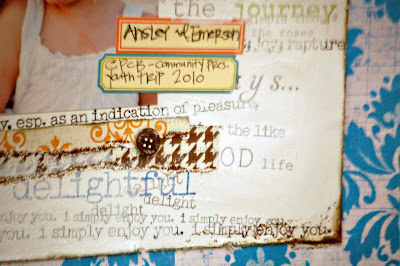 the journey
simple things
the roses
Ansley and Emerson
joy, rapture
GPCB - Community Pres.
Youth Trip 2010
ys...
v. esp. as an indication of pleasure,
the like
OD life
delightful
delight
delight
enjoy you. i simply enjoy you. i simply enjoy you.
enjoy you. i simply enjoy you. i simply enjoy you.